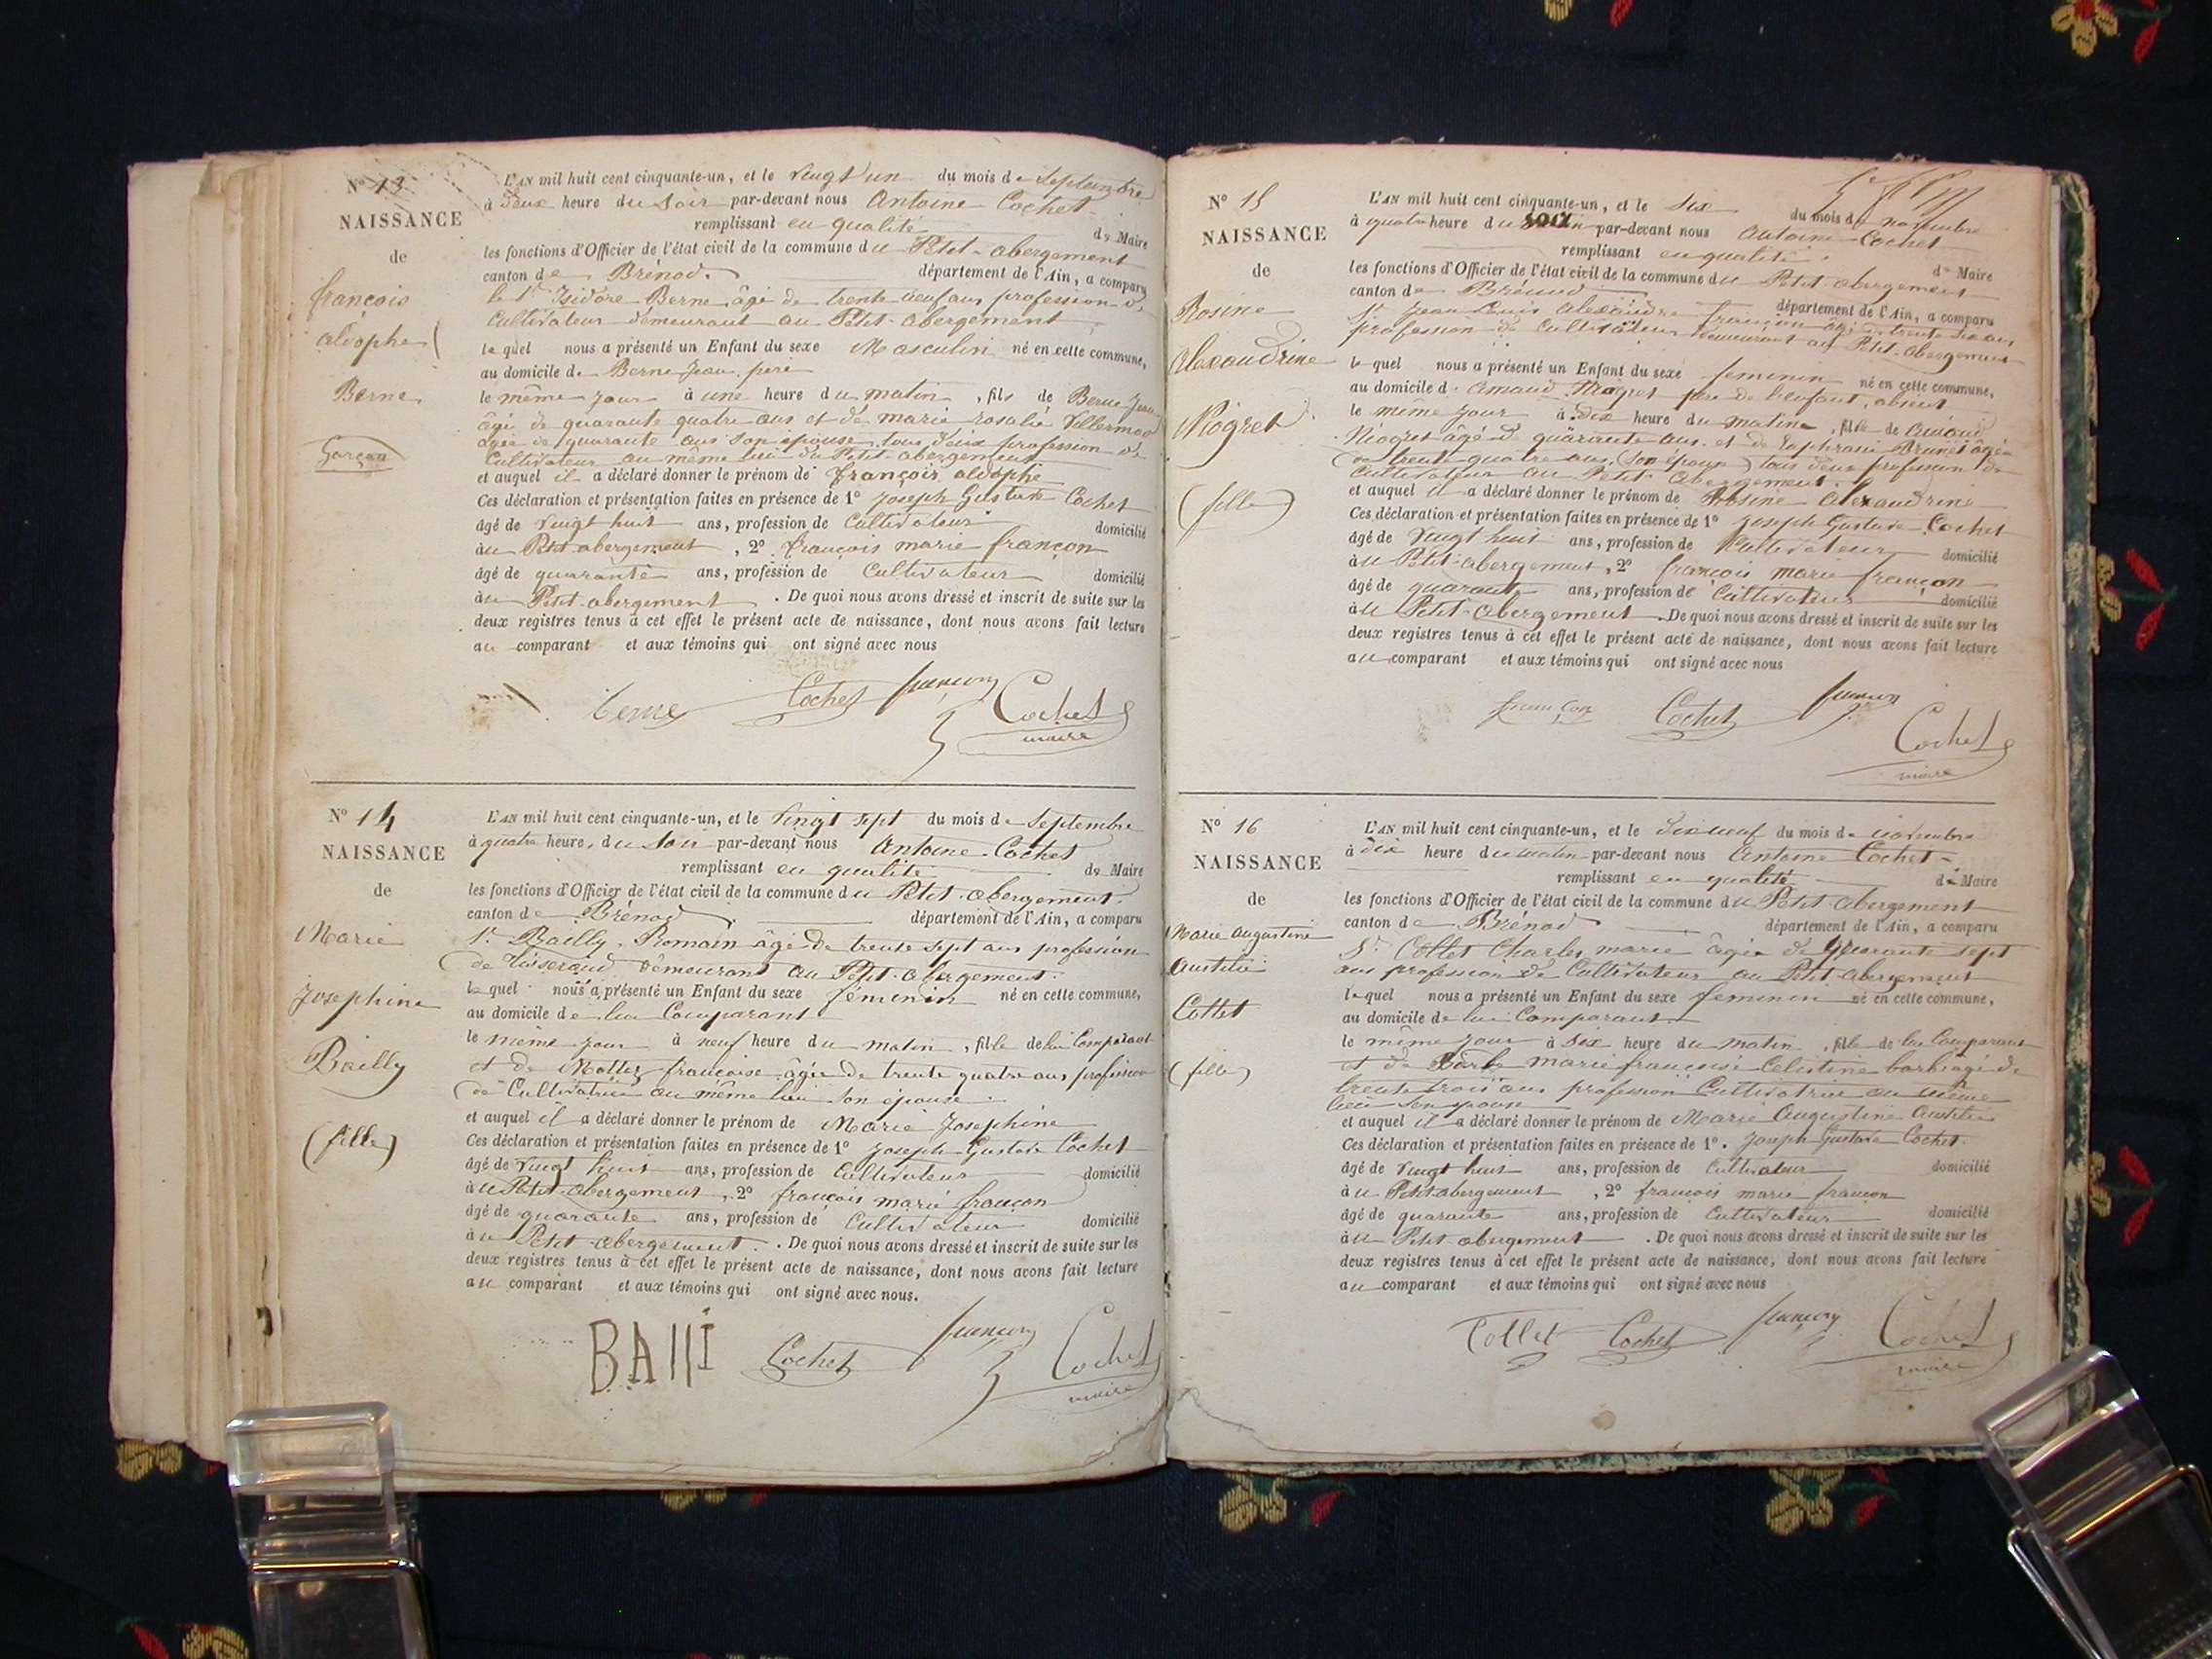 N° 13
NAISSANCE
de
françois
aldophe
Berne
Garçon
L'AN mil huit cent cinquante-un, et le vingt un du mois de Septembre
à deux heure du Soir par-devant nous Antoine Cochet
remplissant en qualité de Maire
les fonctions d'Officier de l'état civil de la commune du Petit-abergement
canton de Brénod département de l'Ain, a comparu
le Sr Isidore Berne, âgé de trente neuf ans profession de
Cultivateur demeurant au Petit-abergement
lequel nous a présenté un Enfant du sexe Masculin né en cette commune,
au domicile de Berne Jean, père
le même jour à une heure du matin, fils de Berne Jean
âgé de quarante quatre ans et de marie rosalie Villermoz
agée de quarante ans son épouse, tous deux profession de
Cultivateur au même lieu du Petit-abergement
et auquel il a déclaré donner le prénom de françois aldophe
Ces déclaration et présentation faites en présence de 1° Joseph Gustave Cochet
âgé de vingt huit ans, profession de Cultivateur domicilié
au Petit abergement, 2° françois marie françon
âgé de quarante ans, profession de Cultivateur domicilié
au Petit-abergement. De quoi nous avons dressé et inscrit de suite sur les
deux registres tenus à cet effet le présent acte de naissance, dont nous avons fait lecture
au comparant et aux témoins qui ont signé avec nous
berne Cochet françon Cochet
maire
N° 14
NAISSANCE
de
Marie
Josephine
Bailly
(fille)
L'AN mil huit cent cinquante-un, et le vingt sept du mois de Septembre
à quatre heure, du Soir par-devant nous Antoine Cochet
remplissant en qualité de Maire
les fonctions d'Officier de l'état civil de la commune du Petit-abergement
canton de Brénod département de l'Ain, a comparu
Sr Bailly, Romain âgé de trente sept ans profession
de tisserand demeurant au Petit-abergement
lequel nous a présenté un Enfant du sexe féminin né en cette commune,
au domicile de lui Comparant
le même jour à neuf heure du matin, fille de lui Comparant
et de Mottez françoise âgée de trente quatre ans profession
de Cultivatrice au même lieu son épouse
et auquel il a déclaré donner le prénom de Marie Josephine
Ces déclaration et présentation faites en présence de 1° Joseph Gustave Cochet
âgé de vingt huit ans, profession de Cultivateur domicilié
au Petit-abergement, 2° françois marie françon
âgé de quarante ans, profession de Cultivateur domicilié
au Petit-abergement. De quoi nous avons dressé et inscrit de suite sur les
deux registres tenus à cet effet le présent acte de naissance, dont nous avons fait lecture
au comparant et aux témoins qui ont signé avec nous.
Cochet françon Cochet
maire
N° 15
NAISSANCE
de
Rosine
Alexandrine
Niogret
(fille)
L'AN mil huit cent cinquante-un, et le six du mois de novembre
à quatre heure du par-devant nous Antoine Cochet
remplissant en qualité de Maire
les fonctions d'Officier de l'état civil de la commune du Petit-abergement
canton de Brénod département de l'Ain, a comparu
Sr Jean Louis Alexandre françon âgé de trente six ans
profession de Cultivateur demeurant au Petit-abergement
lequel nous a présenté un Enfant du sexe feminin né en cette commune,
au domicile d' Amand Niogret père de l'enfant, absent
le même jour à dix heure du matin, fille de Amand
Niogret âgé de quarante ans et de Euphrasie Brunet âgée
de trente quatre ans (son épouse) tous deux profession de
Cultivateur au Petit abergement
et auquel il a déclaré donner le prénom de Rosine Alexandrine
Ces déclaration et présentation faites en présence de 1° Joseph Gustave Cochet
âgé de vingt huit ans, profession de Cultivateur domicilié
au Petit-abergement, 2° françois marie françon
âgé de quarante ans, profession de Cultivateur domicilié
au Petit-abergement. De quoi nous avons dressé et inscrit de suite sur les
deux registres tenus à cet effet le présent acte de naissance, dont nous avons fait lecture
au comparant et aux témoins qui ont signé avec nous
françon Cochet françon
Cochet
maire
N° 16
NAISSANCE
de
Marie augustine
Cottet
(fille)
L'AN mil huit cent cinquante-un, et le dixneuf du mois de novembre
à dix heure du matin par-devant nous Antoine Cochet
remplissant en qualité de Maire
les fonctions d'Officier de l'état civil de la commune du Petit-abergement
canton de Brénod département de l'Ain, a comparu
Sr Cottet Charles marie âgé de quarante sept
ans profession de Cultivateur au Petit-abergement
lequel nous a présenté un Enfant du sexe feminin né en cette commune,
au domicile de lui Comparant
le même jour à six heure du matin, fille de lui Comparant
et de marie françoise Celestine barbe âgé de
trente trois ans profession Cultivatrice au même
lieu son épouse
et auquel il a déclaré donner le prénom de Marie Augustine
Ces déclaration et présentation faites en présence de 1°. Joseph Gustave Cochet
âgé de vingt huit ans, profession de Cultivateur domicilié
au Petit abergement, 2° françois marie françon
âgé de quarante ans, profession de Cultivateur domicilié
au Petit-abergement. De quoi nous avons dressé et inscrit de suite sur les
deux registres tenus à cet effet le présent acte de naissance, dont nous avons fait lecture
au comparant et aux témoins qui ont signé avec nous
Cottet Cochet françon Cochet
maire